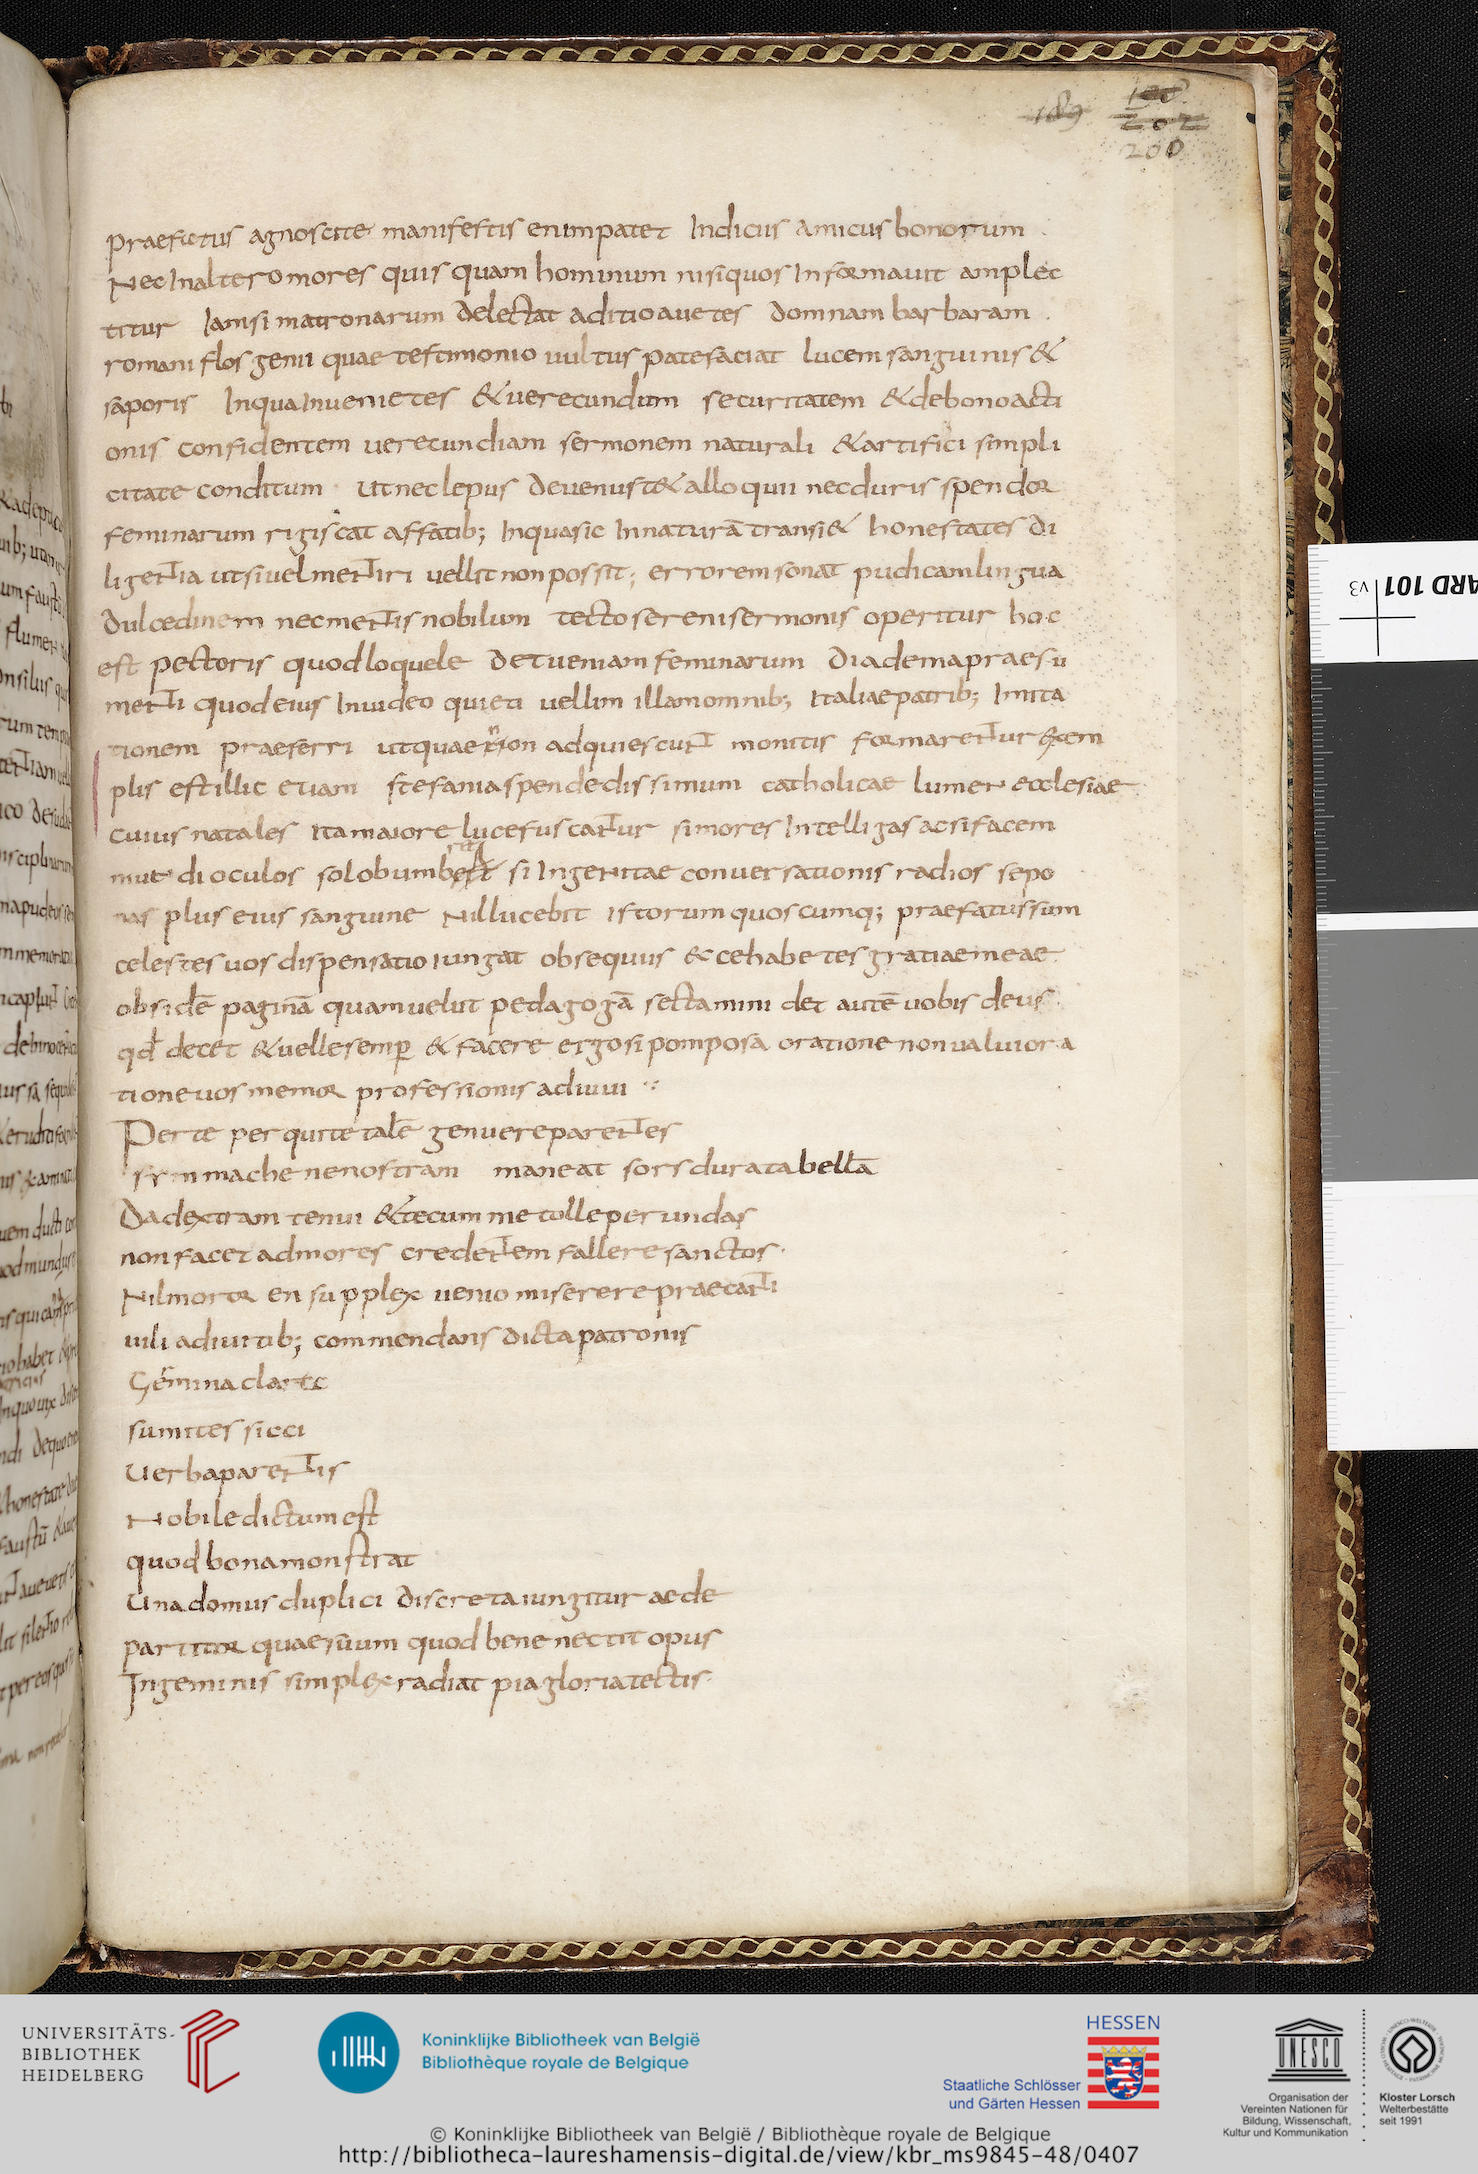 189
188
202
200
praefectus agnoscite manifestis enim patet Indicus amicus bonorum .
Nec Inaltero mores quis quam hominum nisi quos Informauit amplec
titur Iam si matronarum delectat aditio auetes domnam barbaram .
romani flos genii quae testimonio uultus patefaciat lucem sanguinis &
saporis Inqua Inuenietes & uerecundum securitatem & debono acti
onis confidentem uerecundiam sermonem naturali & artifici simpli
citate conditum Ut nec lepus deuenust& alloquii nec duris spendor
feminarum rigiscat affatib; Inqua sic Innaturā transi& honestates di
ligentia ut si uel mentiri uellit non possit; errorem sonat pudicam lingua
dulcedinem nec mentis nobilum tecto sereni sermonis operitur hoc
est pectoris quod loquele det ueniam feminarum diadema praesu
menti quod eius Inuideo quieti uellim illam omnib; Italiae patrib; Imita
tionem praeferri ut quae non adquiescunt monitis formarentur exem
plis est illic etiam stefania spendedissimum catholicae lumen ecclesiae
cuius natales ita maiore luce fuscantur si mores Intelligas ac si facem
mundi oculos sol obumbret si Ingenitae conuersationis radios sepo
nas plus eius sanguine Nil lucebit istorum quoscumq; praefatus sum
celestes uos dispensatio iungat obsequiis & ce habetes gratiae meae
obsidē paginā quam uelut pedagogā sectamini det autē uobis deus
qd decet & uelle semp & facere ergo si pomposa oratione non ualui ora
tione uos memor professionis adiuui
Per te per qui te talē genuere parentes
symmache ne nostram maneat sors dura tabellā
Da dextram tenui & tecum me tolle per undas
non facet admores credentem fallere sanctos .
Nil moror en supplex uenio miserere praecanti
uili adiuitib; commendans dicta patronis
Gēmina claret
sumites sicci
Uerba parentis
Nobile dictum est
quod bona monstrat
Una domus duplici discreta iungitur aede
partitor quaesuum quod bene nectit opus
Ingeminis simplex radiat pia gloria tectis
ARD 101 v3
UNIVERSITÄTS-
BIBLIOTHEK
HEIDELBERG
Koninklijke Bibliotheek van België
Bibliothèque royale de Belgique
HESSEN
Staatliche Schlösser
und Gärten Hessen
UNESCO
Organisation der
Vereinten Nationen für
Bildung, Wissenschaft,
Kultur und Kommunikation
Kloster Lorsch
Welterbestätte
seit 1991
© Koninklijke Bibliotheek van België / Bibliothèque royale de Belgique
http://bibliotheca-laureshamensis-digital.de/view/kbr_ms9845-48/0407